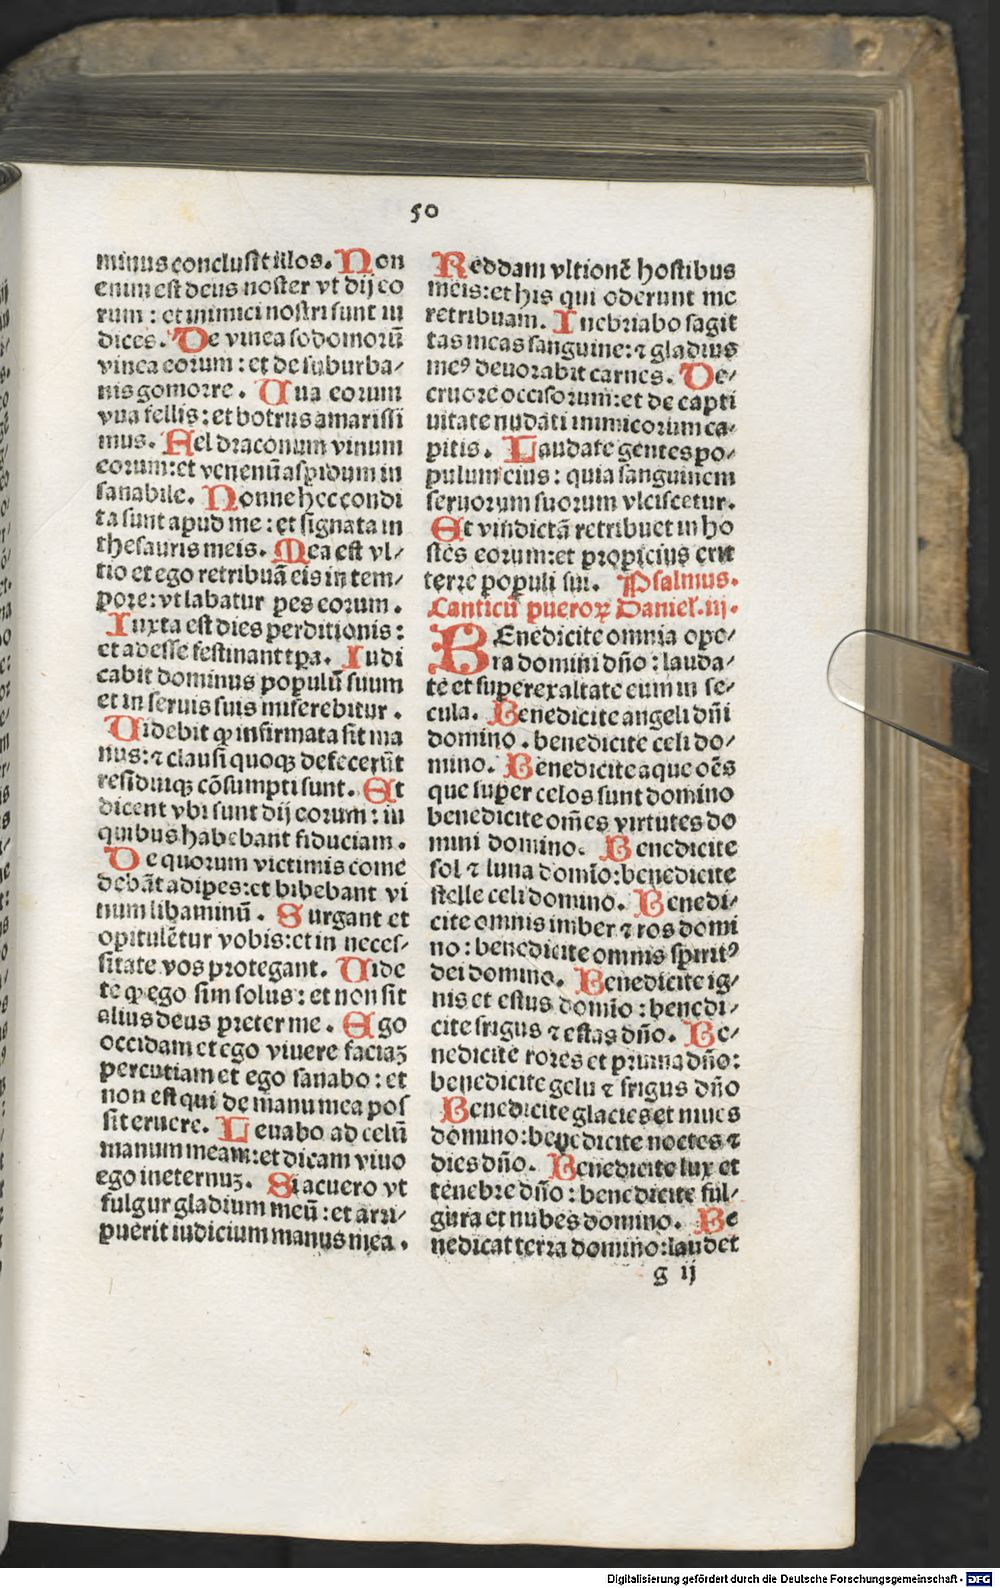 50
minus conclusit illos. Non
enim est deus noster vt dij eo
rum : et inimici nostri sunt iu
dices. De vinea sodomorū
vinea eorum : et de suburba⸗
nis gomorre. Uua eorum
vua fellis : et botrus amarissi
mus. Fel draconum vinum
eorum: et venenū aspidum in
sanabile. Nonne hec condi
ta sunt apud me : et signata in
thesauris meis. Mea est vl⸗
tio et ego retribuā eis in tem⸗
pore: vt labatur pes eorum.
Iuxta est dies perditionis :
et adesse festinant tp̄a. Iudi
cabit dominus populū suum
et in seruis suis miserebitur.
Uidebit ꝙ infirmata sit ma
nus: ⁊ clausi quoqꝫ defecerūt
residuiqꝫ cōsumpti sunt. Et
dicent vbi sunt dij eorum : in
quibus habebant fiduciam.
De quorum victimis come
debāt adipes: et bibebant vi
num libaminū. Surgant et
opitulētur vobis: et in neces⸗
sitate vos protegant. Uide
te ꝙ ego sim solus : et non sit
alius deus preter me. Ego
occidam et ego viuere faciaꝫ
percutiam et ego sanabo : et
non est qui de manu mea pos
sit eruere. Leuabo ad celū
manum meam: et dicam viuo
ego in eternuꝫ. Si acuero vt
fulgur gladium meū : et arri⸗
puerit iudicium manus mea.
Reddam vltionē hostibus
meis: et his qui oderunt me
retribuam. Inebriabo sagit
tas meas sanguine: ⁊ gladius
meꝰ deuorabit carnes. De⸗
cruore occisorum: et de capti
uitate nudati inimicorum ca⸗
pitis. Laudate gentes po⸗
pulum eius : quia sanguinem
seruorum suorum vlciscetur.
Et vindictā retribuet in ho
stes eorum: et propicius erit
terre populi sui. Psalmus.
Canticū pueroꝝ Daniel. iij.
BEnedicite omnia ope⸗
ra domini dño : lauda⸗
te et superexaltate eum in se⸗
cula. Benedicite angeli dñi
domino. benedicite celi do⸗
mino. Benedicite aque oēs
que super celos sunt domino
benedicite om̄es virtutes do
mini domino. Benedicite
sol ⁊ luna domīo: benedicite
stelle celi domino. Benedi⸗
cite omnis imber ⁊ ros domi
no : benedicite omnis spiritꝰ
dei domino. Benedicite ig⸗
nis et estus domīo : benedi⸗
cite frigus ⁊ estas dño. Be⸗
nedicite rores et pruina dño:
benedicite gelu ⁊ frigus dño
Benedicite glacies et niues
domino: benedicite noctes ⁊
dies dño. Benedicite lux et
tenebre dño : benedicite ful⸗
gura et nubes domino. Be
nedicat terra domino: laudet
g ij
Digitalisierung gefördert durch die Deutsche Forschungsgemeinschaft - DFG